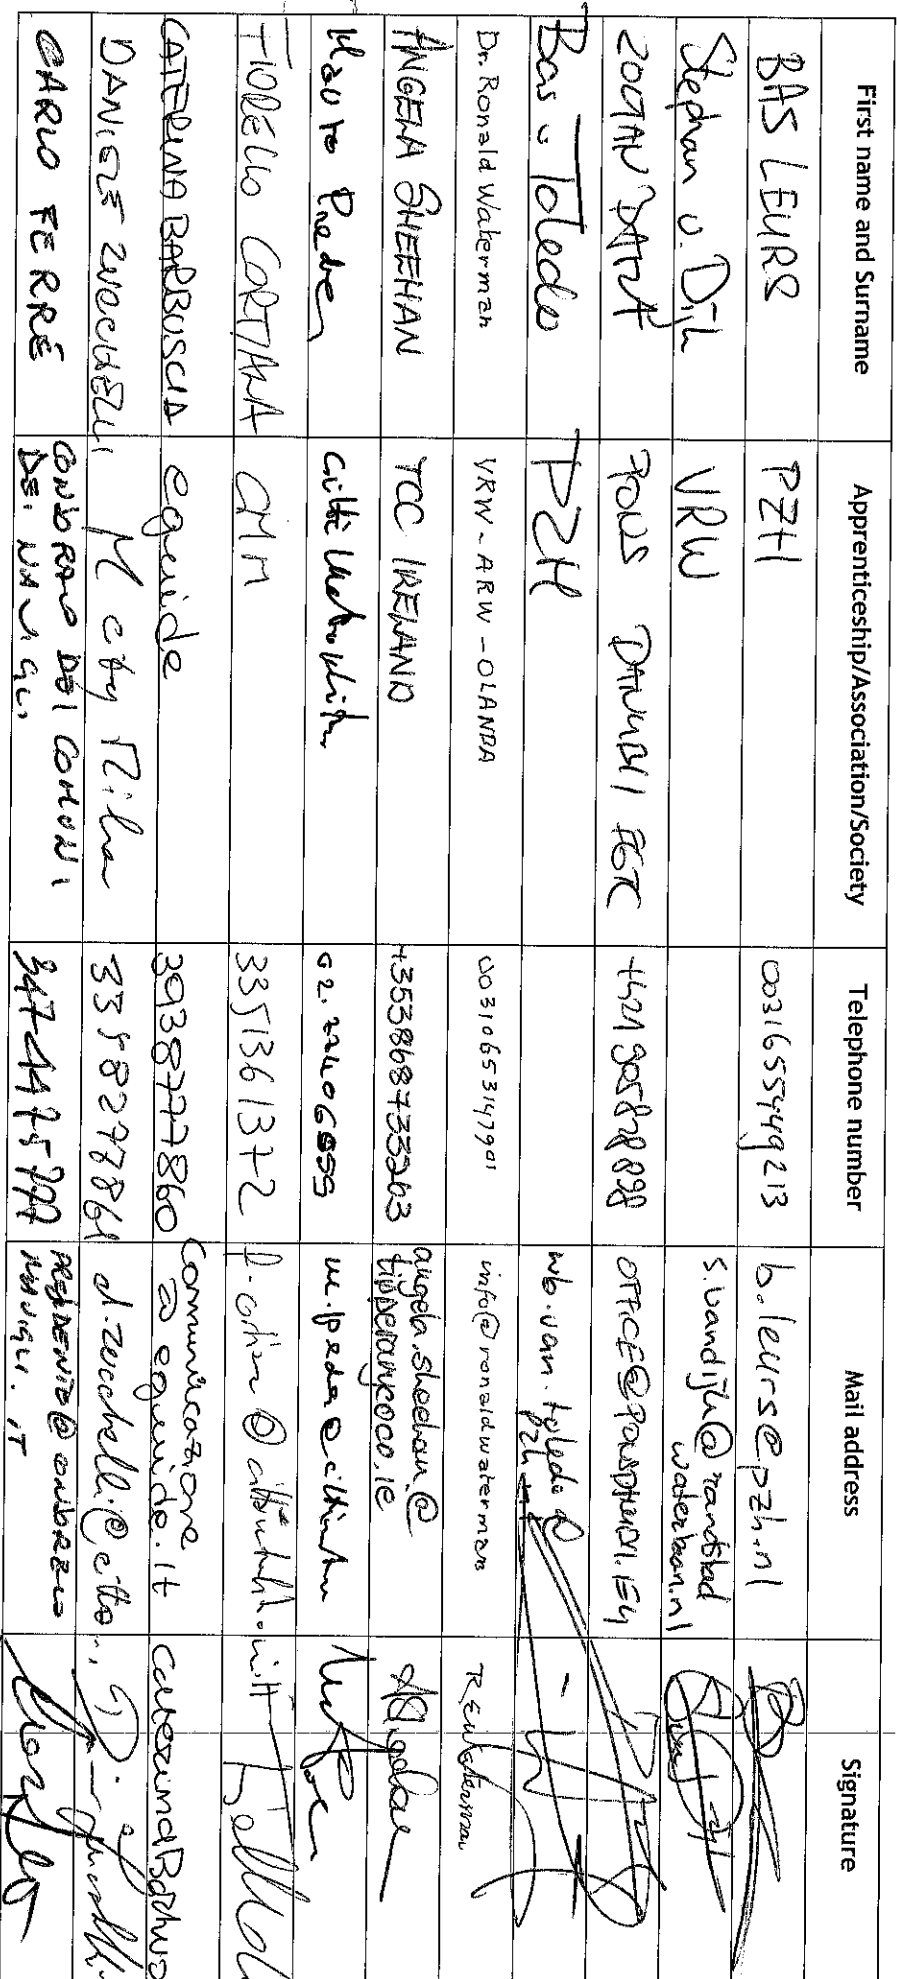 First name and Surname Apprenticeship/Association/Society Telephone number Mail address Signature
BAS LEURS PZH 0031655449213 b.leurs@pzh.nl
Stephan v. Dijk VRW s.vandijk@randstad
waterbaan.nl
ZOLTAN PONS DANUBII EGTC +421905878898
Bas v Toledo PZH wb.van.toledo@
pzh.nl
Dr. Ronald Waterman VRW-ARW-OLANDA 00310653147901 info@ronaldwaterman REWaterman
ANGELA SHEEHAN TCC IRELAND +353868733263 angela.sheehan@
tipperarycoco.ie
Mauro Città Metropolitana
FIORELLO CORTIANA CMM 3351361372
CATERINA BARBUSCIA eguide 3938777860 comunicazione
@ eguide.it Caterina
DANIELE ZUCCHELLI M city Milan 3358277861 d.zucchelli@citta..
CARLO FERRÉ CONSORZIO DEI COMUNI
DEI NAVIGLI PRESIDENTE@CONSORZIO
NAVIGLI.IT